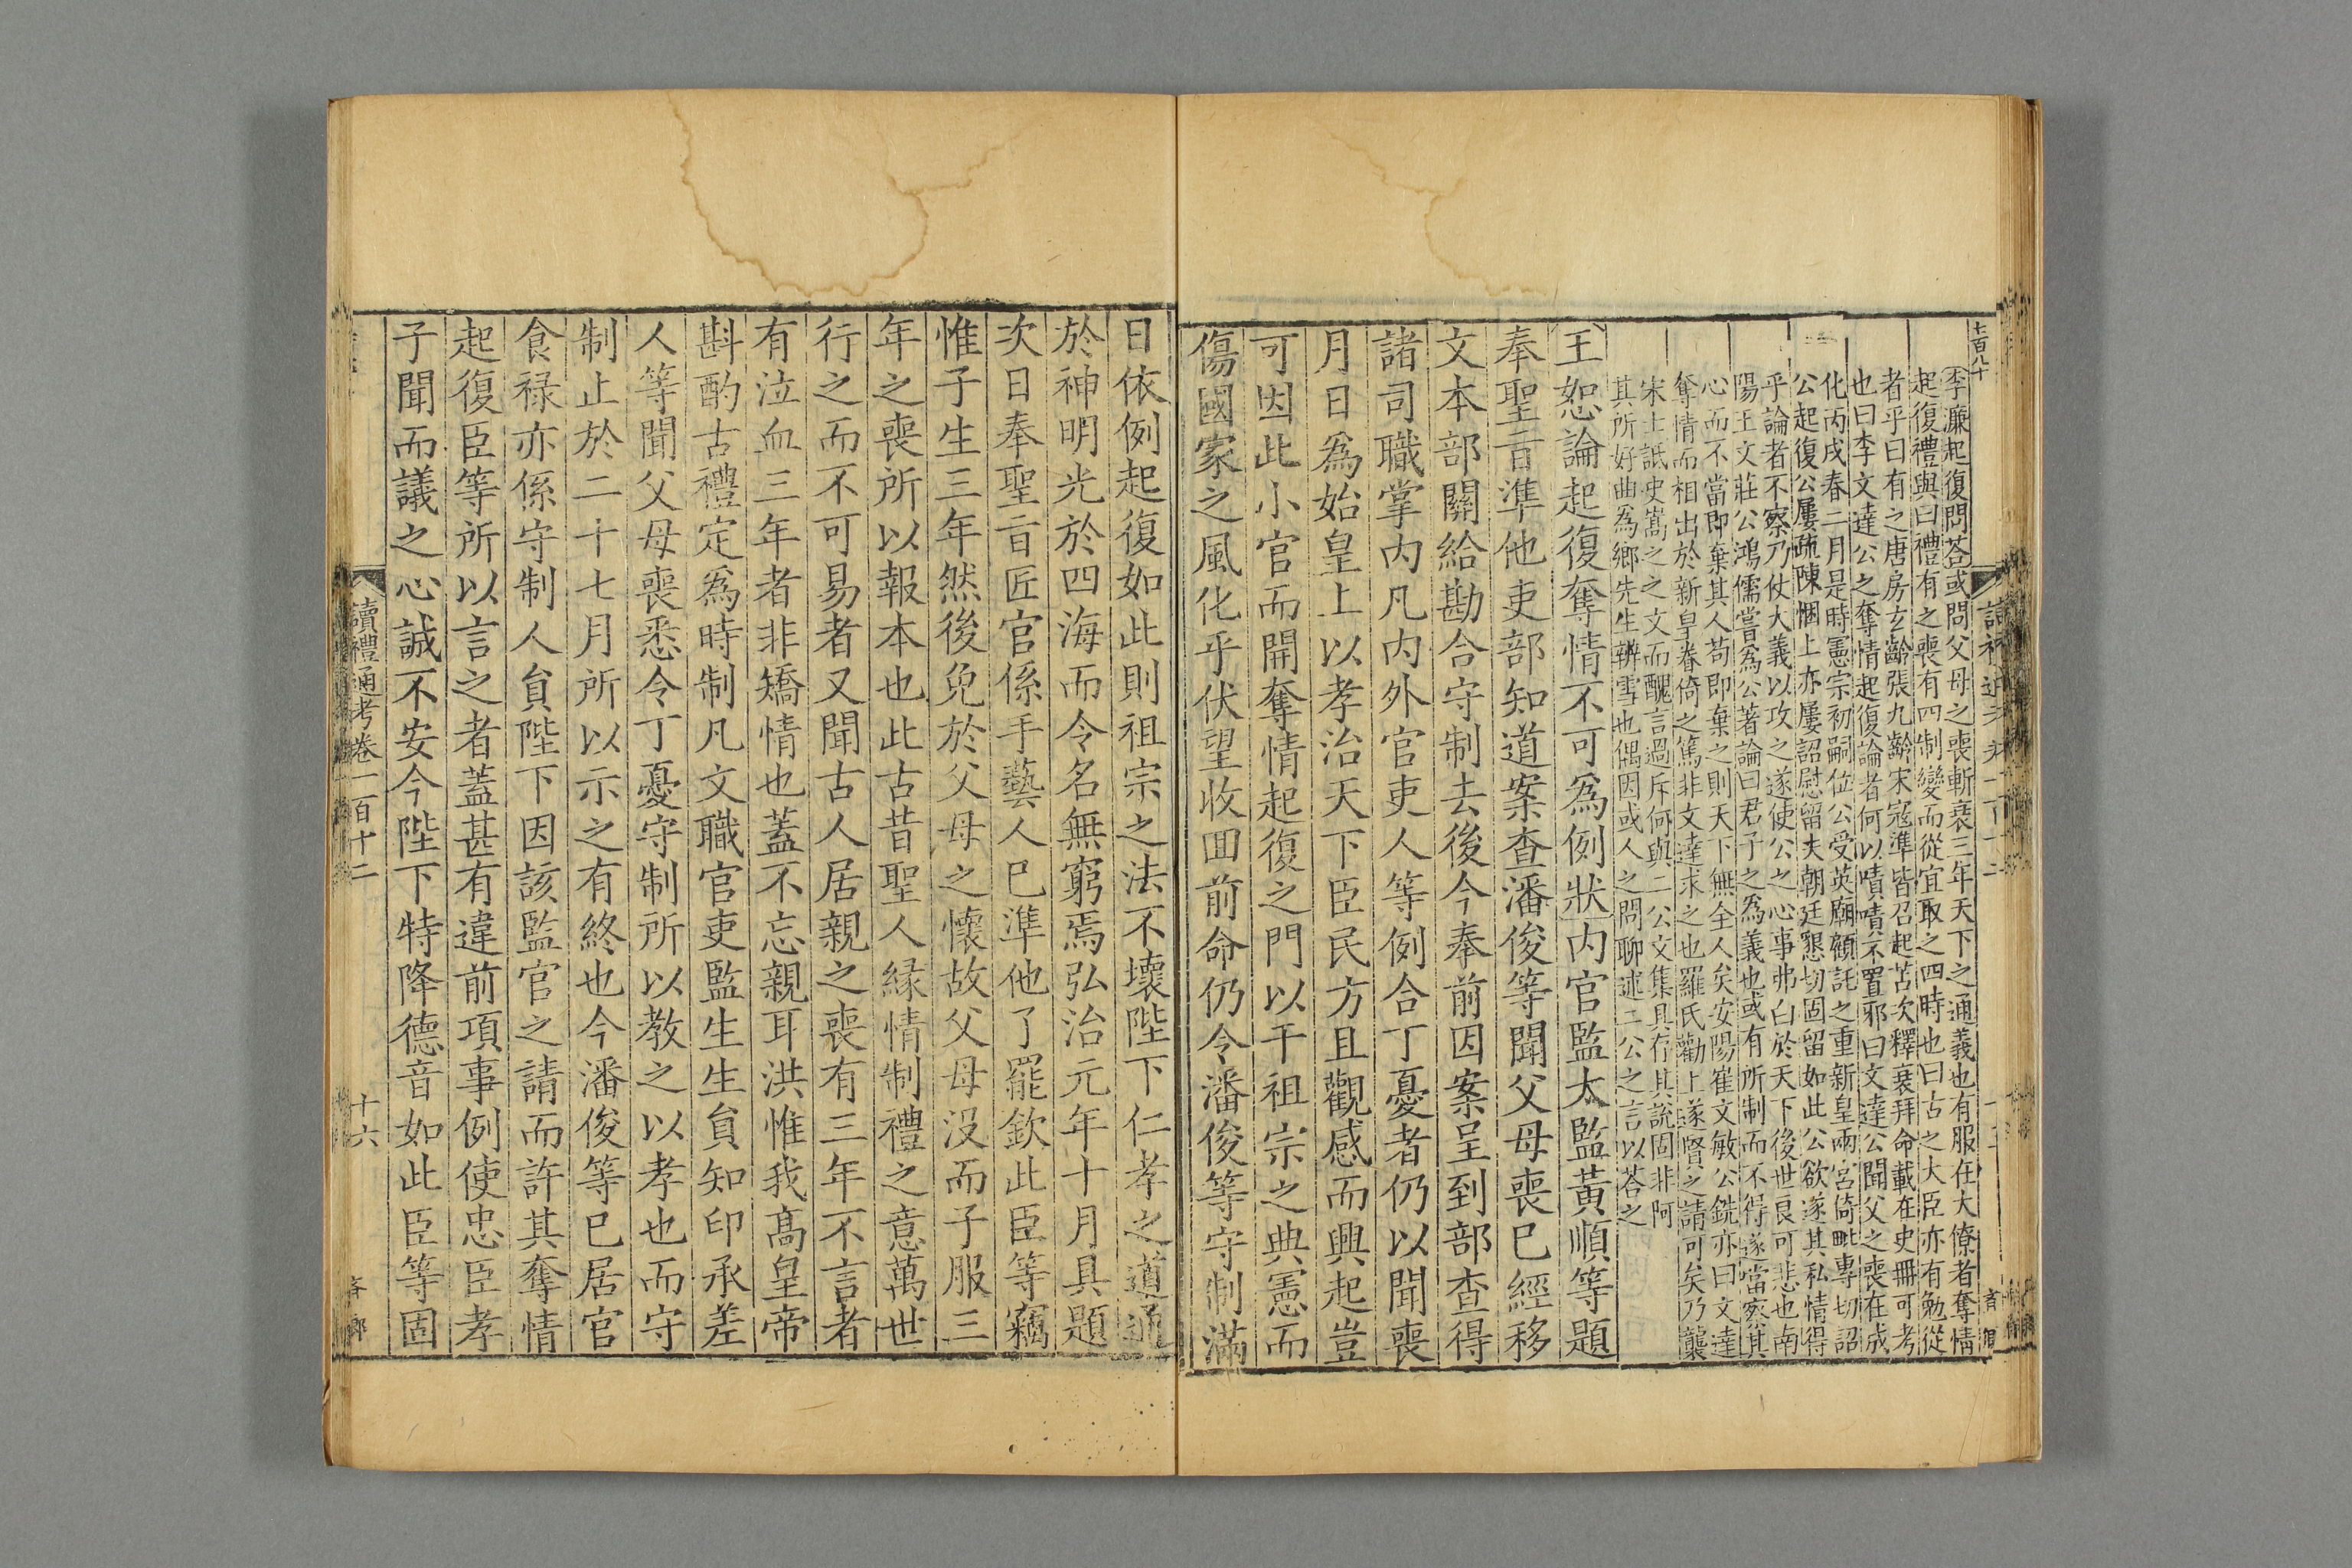 李濂起復問荅或問父母之喪斬衰三年天下之通義也有服在大僚者奪情
起復禮與曰禮有之喪有四制變而從宜取之四時也曰古之大臣亦有勉從
者乎曰有之唐房玄齡張九齡宋寇準皆召起苫次釋衰拜命載在史冊可考
也曰李文達公之奪情起復論者何以嘖嘖不置邪曰文達公聞父之喪在成
化丙戌春二月是時憲宗初嗣位公受英廟顧託之重新皇兩宮倚毗專切詔
公起復公屢疏陳悃上亦屢詔慰留夫朝廷懇切固留如此公欲遂其私情得
乎論者不察乃仗大義以攻之遂使公之心事弗白於天下後世良可悲也南
陽王文莊公鴻儒嘗為公著論曰君子之為義也或有所制而不得遂當察其
心而不當即棄其人苟即棄之則天下無全人矣安陽崔文敏公銑亦曰文達
奪情而相出於新皇眷倚之篤非文達求之也羅氏勸上遂賢之請可矣乃襲
宋士詆史嵩之之文而醜言過斥何與二公文集具存其說固非阿
其所好曲為鄉先生辨雪也偶因或人之問聊述二公之言以荅之
王恕論起復奪情不可為例狀内官監太監黃順等題
奉聖旨準他吏部知道案查潘俊等聞父母喪已經移
文本部關給勘合守制去後今奉前因案呈到部查得
諸司職掌内凡内外官吏人等例合丁憂者仍以聞喪
月日爲始皇上以孝治天下臣民方且觀感而興起豈
可因此小官而開奪情起復之門以干祖宗之典憲而
傷國家之風化乎伏望收囬前命仍令潘俊等守制滿
日依例起復如此則祖宗之法不壞陛下仁孝之道通
於神明光於四海而令名無窮焉弘治元年十月具題
次日奉聖旨匠官係手藝人已準他了罷欽此臣等竊
惟子生三年然後免於父母之懷故父母没而子服三
年之喪所以報本也此古昔聖人緣情制禮之意萬世
行之而不可易者又聞古人居親之喪有三年不言者
有泣血三年者非矯情也蓋不忘親耳洪惟我高皇帝
斟酌古禮定爲時制凡文職官吏監生生貟知印承差
人等聞父母喪悉令丁憂守制所以教之以孝也而守
制止於二十七月所以示之有終也今潘俊等已居官
食禄亦係守制人貟陛下因該監官之請而許其奪情
起復臣等所以言之者蓋甚有違前項事例使忠臣孝
子聞而議之心誠不安今陛下特降德音如此臣等固
讀禮通考卷一百十二
十六